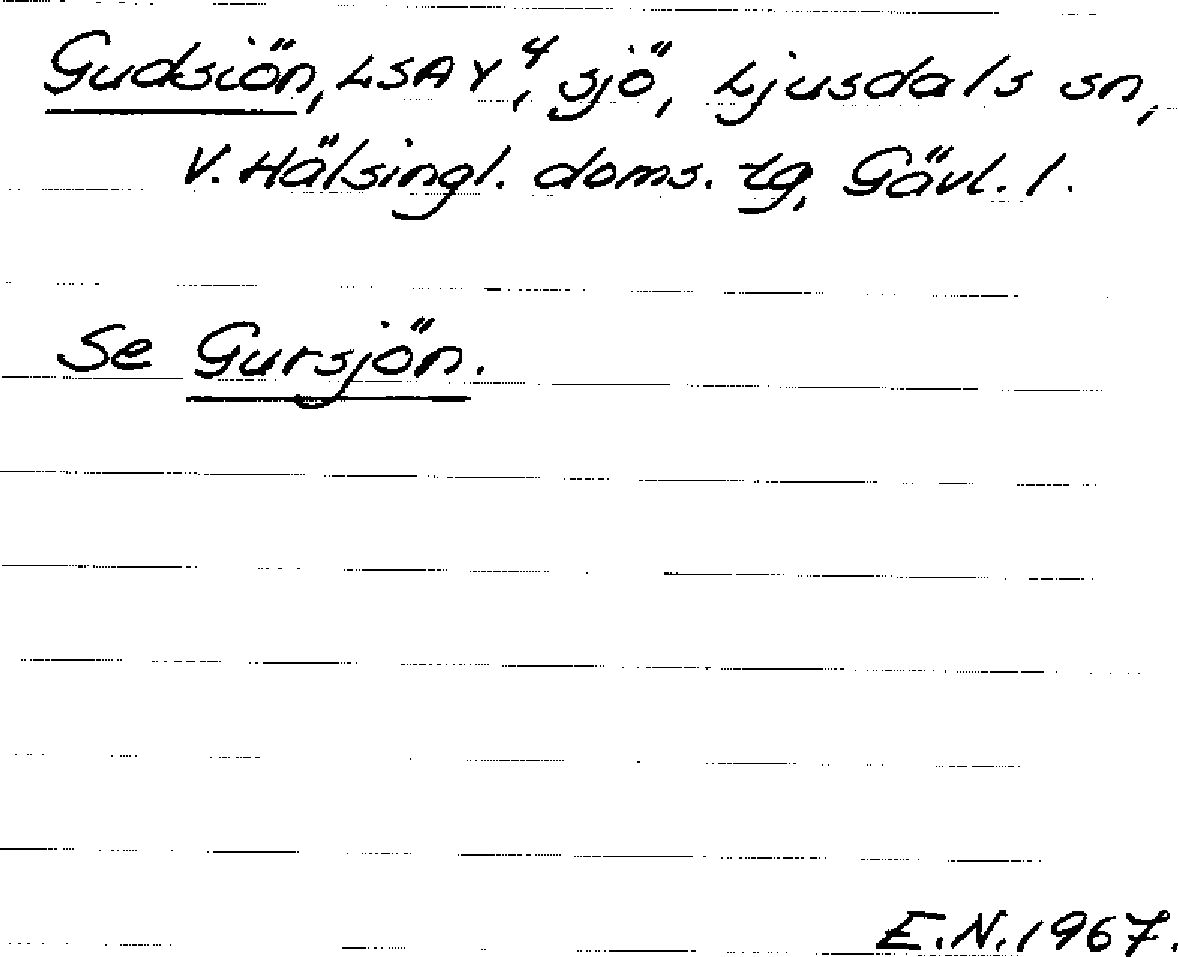 Gudsiön, LSA Y⁴, sjö, Ljusdals sn,
V. Hälsingl. doms. tg, Gävl. l.
Se Gursjön.
E.N. 1967.